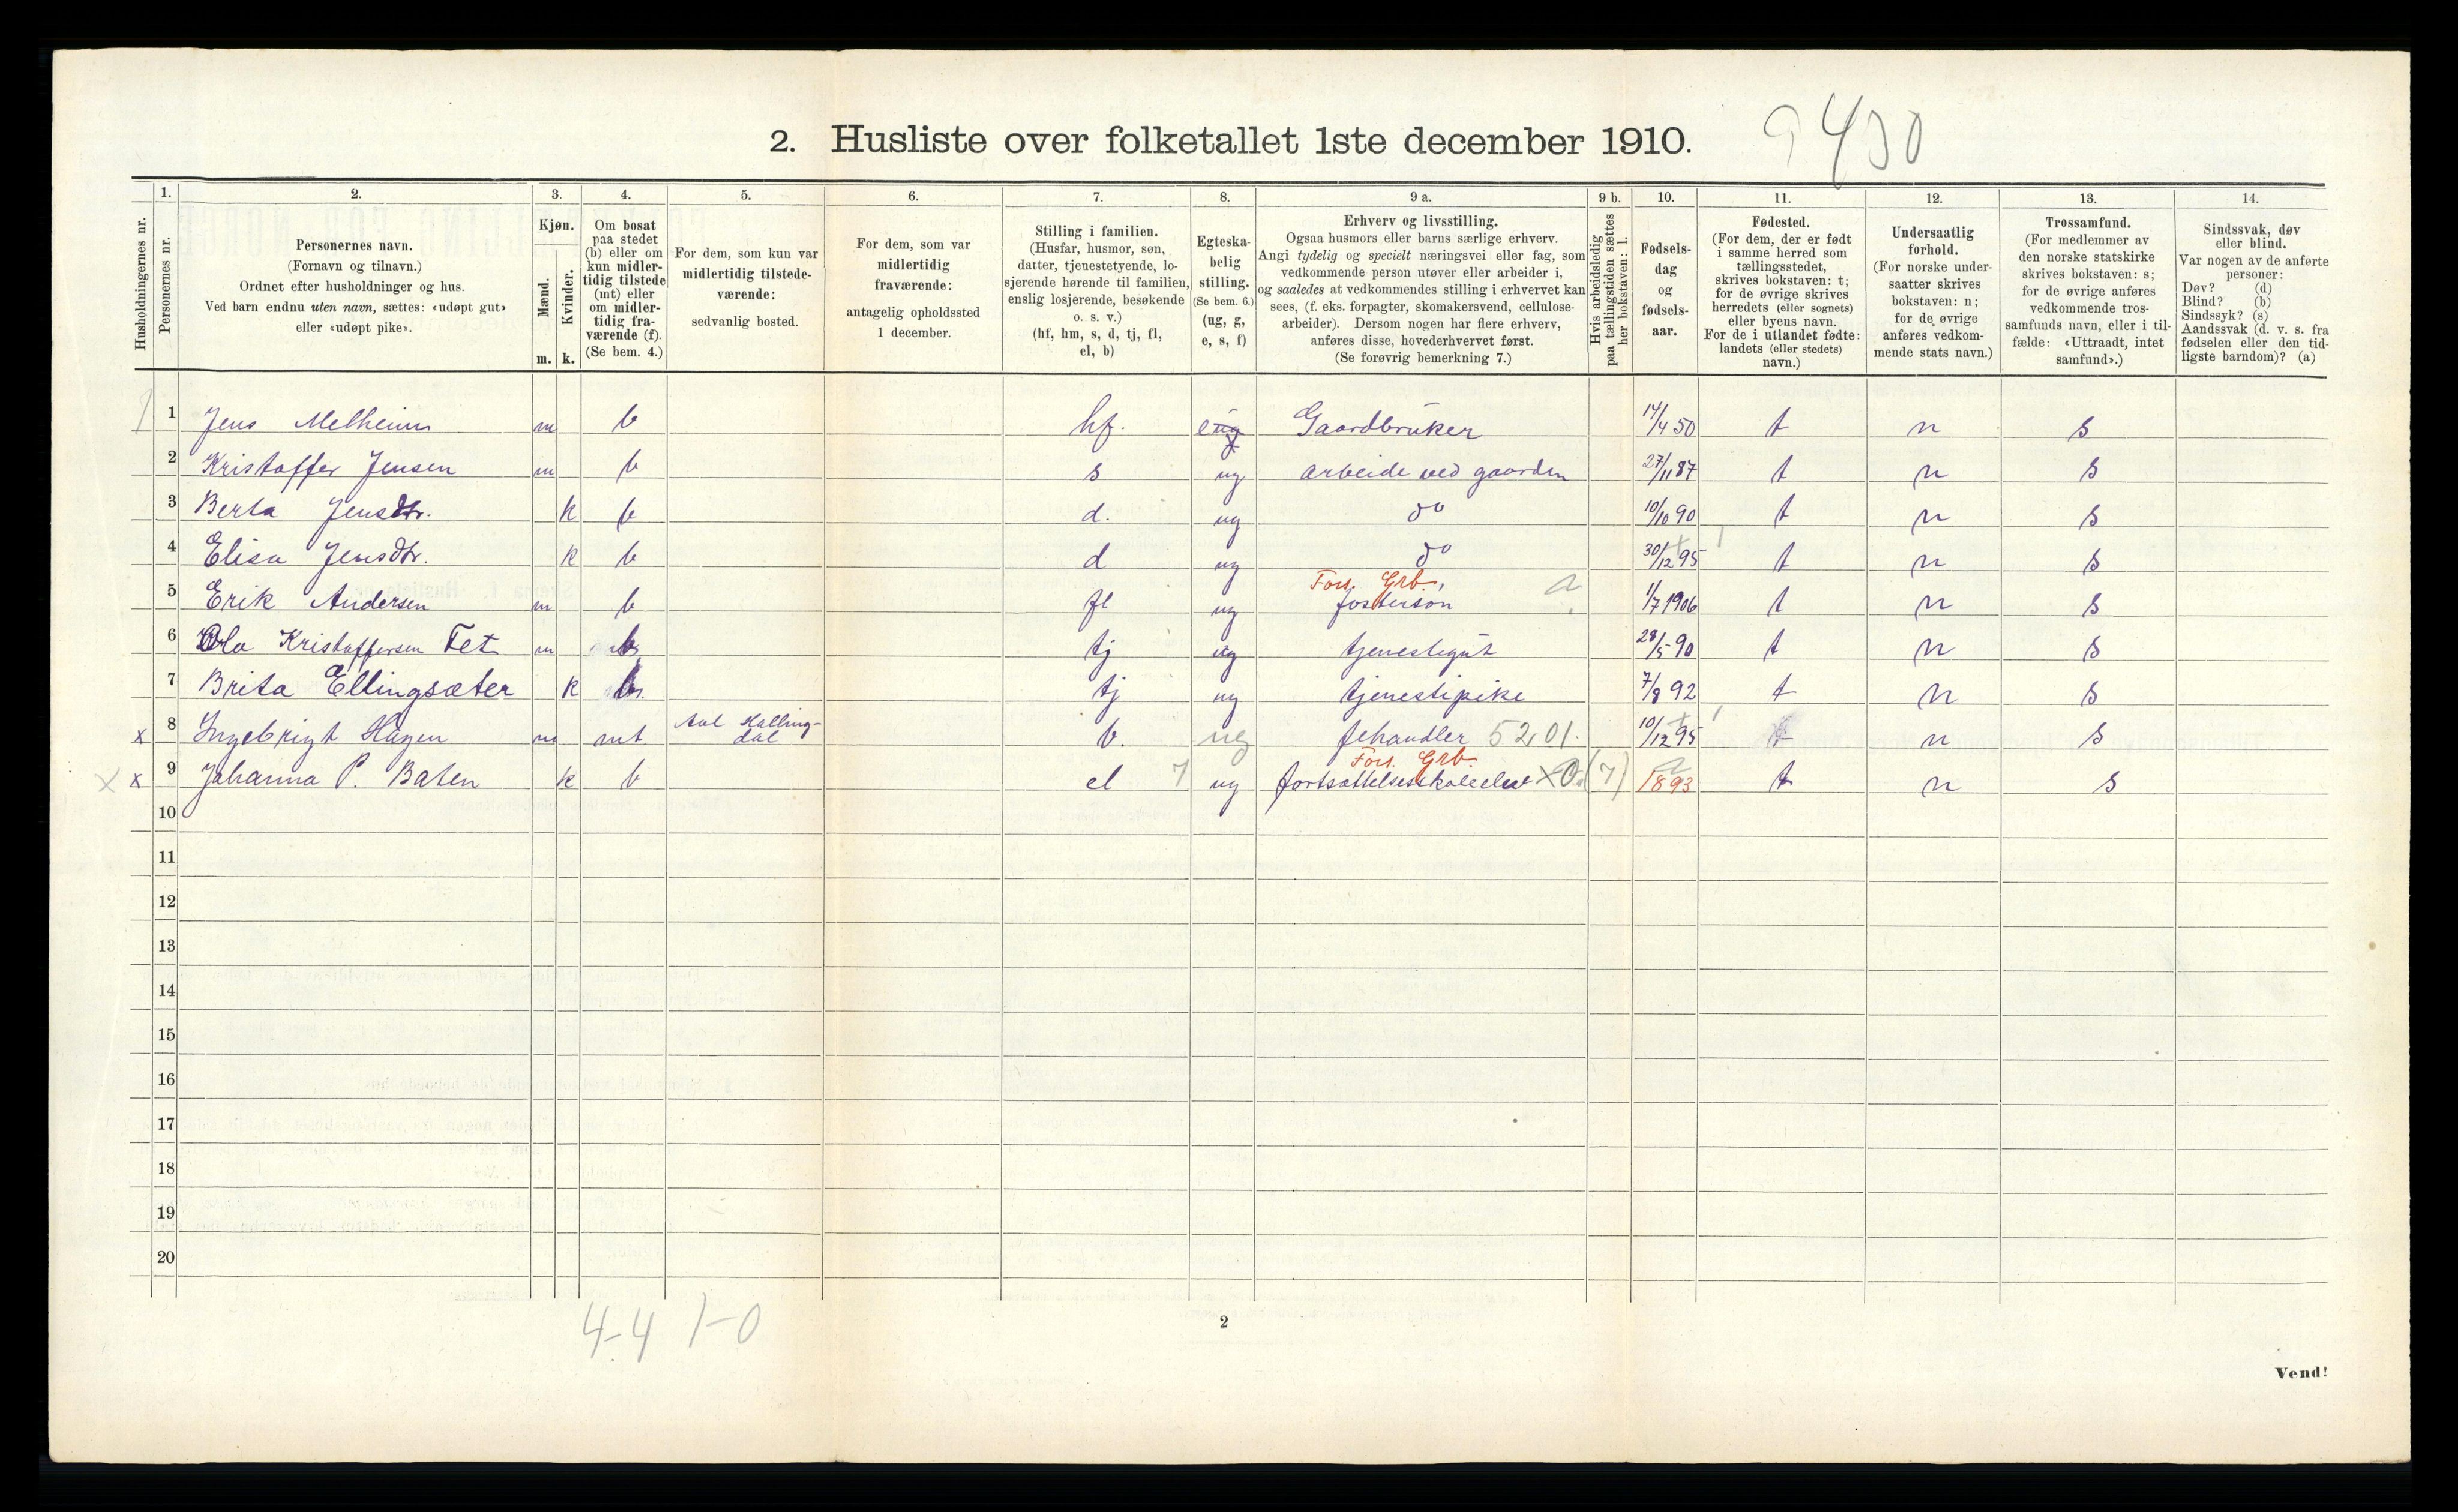 2. Husliste over folketallet 1ste december 1910.
9430
Husholdningernes nr.
1.
Personernes nr.
2.
Personernes navn.
(Fornavn og tilnavn.)
Ordnet efter husholdninger og hus.
Ved barn endnu uten navn, sættes: «udøpt gut»
eller «udøpt pike».
3.
Kjøn.
Mænd.
Kvinder.
m. k.
4.
Om bosat
paa stedet
(b) eller om
kun midler-
tidig tilstede
(mt) eller
om midler-
tidig fra-
værende (f).
(Se bem. 4.)
5.
For dem, som kun var
midlertidig tilstede-
værende:
sedvanlig bosted.
6.
For dem, som var
midlertidig
fraværende:
antagelig opholdssted
1 december.
7.
Stilling i familien.
(Husfar, husmor, søn,
datter, tjenestetyende, lo-
sjerende hørende til familien,
enslig losjerende, besøkende
o. s. v.)
(hf, hm, s, d, tj, fl,
el, b)
8.
Egteska-
belig
stilling.
(Se bem. 6.)
(ug, g,
e, s, f)
9 a.
Erhverv og livsstilling.
Ogsaa husmors eller barns særlige erhverv.
Angi tydelig og specielt næringsvei eller fag, som
vedkommende person utøver eller arbeider i,
og saaledes at vedkommendes stilling i erhvervet kan
sees, (f. eks. forpagter, skomakersvend, cellulose-
arbeider). Dersom nogen har flere erhverv,
anføres disse, hovederhvervet først.
(Se forøvrig bemerkning 7.)
9 b.
Hvis arbeidsledig
paa tællingstiden sættes
her bokstaven: l.
10.
Fødsels-
dag
og
fødsels-
aar.
11.
Fødested.
(For dem, der er født
i samme herred som
tællingsstedet,
skrives bokstaven: t;
for de øvrige skrives
herredets (eller sognets)
eller byens navn.
For de i utlandet fødte:
landets (eller stedets)
navn.)
12.
Undersaatlig
forhold.
(For norske under-
saatter skrives
bokstaven: n;
for de øvrige
anføres vedkom-
mende stats navn.)
13.
Trossamfund.
(For medlemmer av
den norske statskirke
skrives bokstaven: s;
for de øvrige anføres
vedkommende tros-
samfunds navn, eller i til-
fælde: «Uttraadt, intet
samfund».)
14.
Sindssvak, døv
eller blind.
Var nogen av de anførte
personer:
Døv? (d)
Blind? (b)
Sindssyk? (s)
Aandssvak (d. v. s. fra
fødselen eller den tid-
ligste barndom)? (a)
1 Jens Melheim m b hf. e Gaardbruker 14/4 50 t n s
2 Kristoffer Jensen m b s ug arbeide ved gaarden 27/11 87 t n s
3 Berta Jensdtr. k b d. ug do 10/10 90 t n s
4 Elisa Jensdtr. k b d ug do 30/12 95 t n s
Fors. Grb.
5 Erik Andersen m b fl ug fosterson 1/7 1906 t n s
6 Ola Kristoffersen Tet m b tj ug tjenestegut 28/5 90 t n s
7 Brita Ellingsæter k b tj ug tjenestepike 7/8 92 t n s
x 8 Ingebrigt Hagen m mt Aal Halling-
dal b. ug fehandler 5201. 10/12 95 t n s
Fors. Grb.
x x 9 Johanna P. Baten k b el 7 ug fortsættelsesskoleelev x0. (7) 1893 t n s
10
11
12
13
14
15
16
17
18
19
20
4-4 1-0
2
Vend!